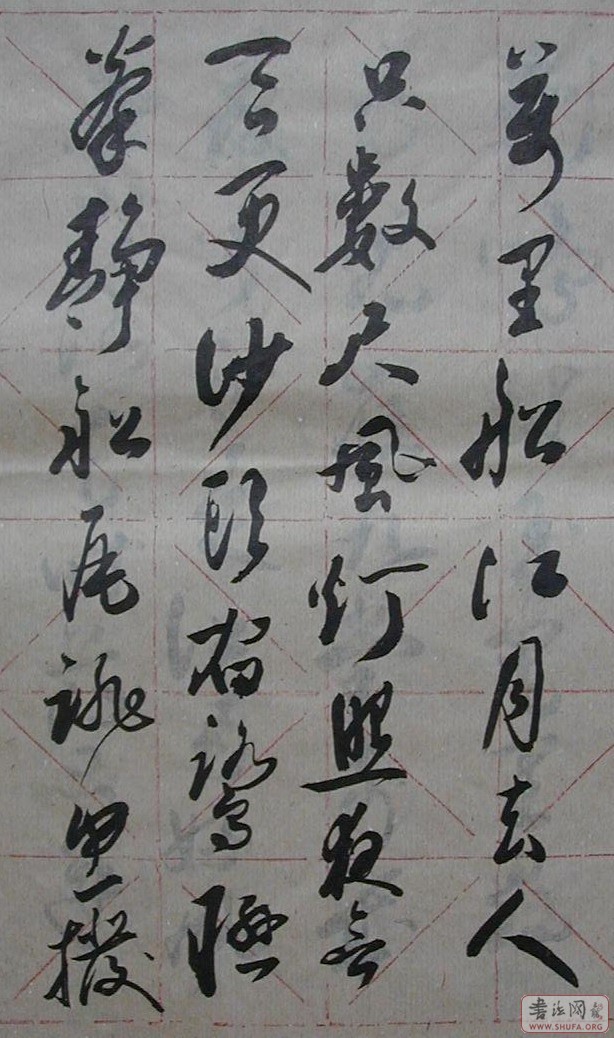 萬里船江月去人
只數尺風灯照夜
三更沙頭宿鷺聯
拳靜船尾跳魚撥
書法网
WWW.SHUFA.ORG